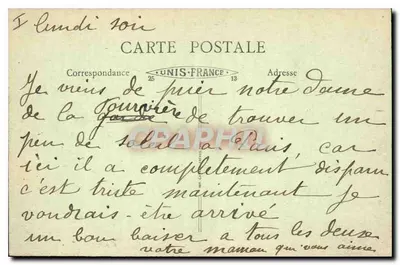 I lundi soir
CARTE POSTALE
Correspondance 25 UNIS-FRANCE 13 Adresse
Je viens de prier notre dame
de la garde Fourvière de trouver un
peu de soleil a Paris, car
ici il a completement disparu
c'est triste maintenant je
voudrais-être arrivé
un bon baiser a tous les deux
votre maman qui vous aime